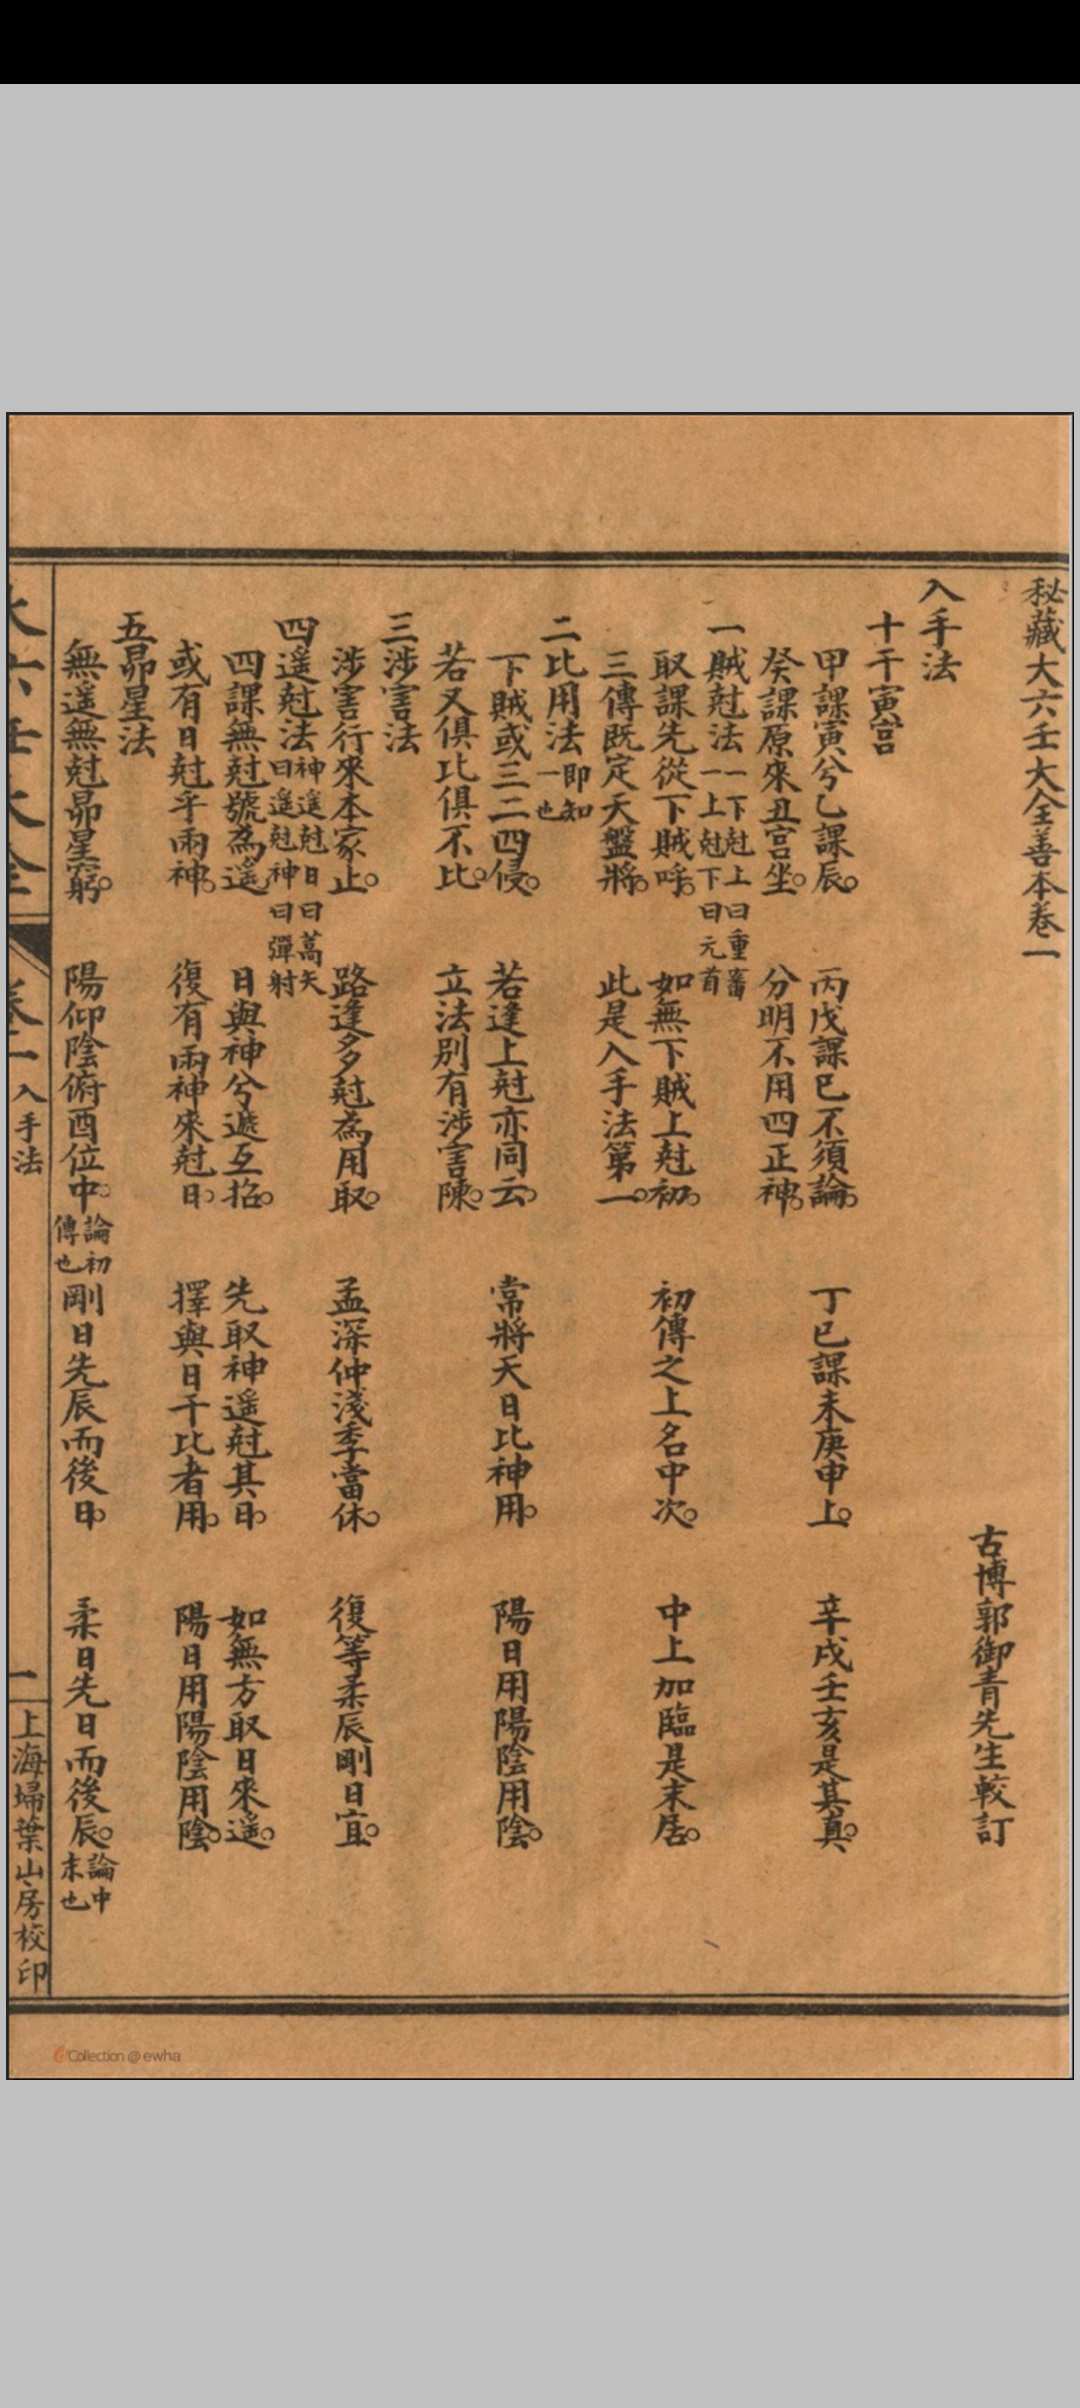 秘藏大六壬大全善本卷一
古博郭御青先生較訂
入手法
十干寅宮
甲課寅兮乙課辰。 丙戊課巳不須論。 丁己課未庚申上。 辛戌壬亥是其真。
癸課原來丑宮坐。 分明不用四正神。
一賊尅法 一下尅上曰重審 一上尅下曰元首
取課先從下賊呼。 如無下賊上尅初。 初傳之上名中次。 中上加臨是末居。
三傳既定天盤將。 此是入手法第一。
二比用法 即知一也
下賊或三二四侵。 若逢上尅亦同云。 常將天日比神用。 陽日用陽陰用陰。
若又俱比俱不比。 立法別有涉害陳。
三涉害法
涉害行來本家止。 路逢多尅為用取。 孟深仲淺季當休。 復等柔辰剛日宜。
四遥尅法 神遥尅日曰蒿矢 日遥尅神曰彈射
四課無尅號為遥 日與神兮遞互招。 先取神遥尅其日。 如無方取日來遥。
或有日尅乎兩神。 復有兩神來尅日。 擇與日干比者用。 陽日用陽陰用陰
五昴星法
無遥無尅昴星窮。 陽仰陰俯酉位中。 論初傳也 剛日先辰而後日。 柔日先日而後辰。 論中末也
大六壬大全 卷一 入手法 一 上海埽葉山房校印
Collection @ ewha